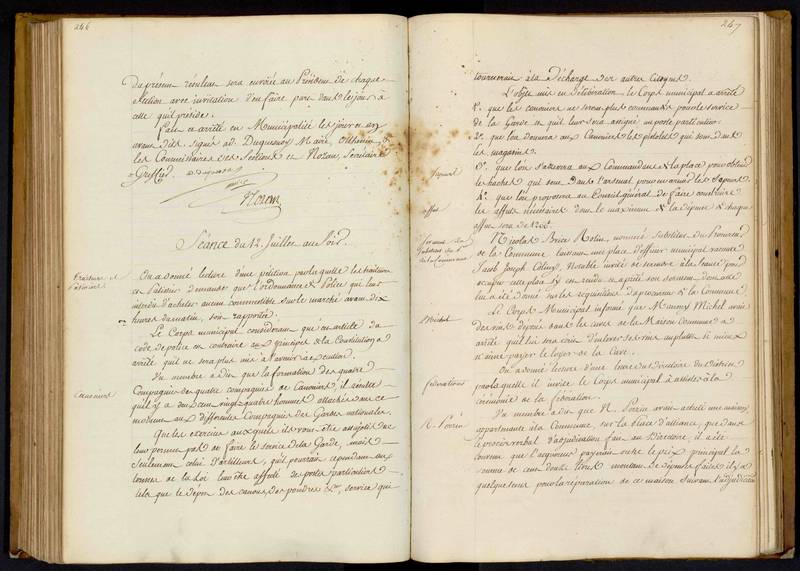 246
Du présent résultat sera envoïé au Président de chaque
Section avec invitation d'en faire part dans le jour à
celle qu'il préside.
Fait et arrêté en Municipalité les jour et an
avant dits. signé ad. Duquesnoy Maire,
les Commissaires des Sections et Nozan, Secrétaire
Greffier.
Séance du 12 Juillet au soir.
Traiteurs et
Patissiers
On a donné lecture d'une pétition par laquelle les traiteurs
et Patissiers demandent que l'ordonnance de Police qui leur
interdit d'acheter aucun commestible sur le marché avant dix
heures du matin, soit rapportée.
Le Corps municipal considérant que cet article du
code de police est contraire aux principes de la Constitution a
arrêté qu'il ne sera plus mis à l'avenir à exécution.
Canoniers
Un membre a dit que la formation des quatre
Compagnies des quatre compagnies de Canoniers, il résulte
qu'il y a deux cent vingt quatre hommes attachés dans ce
moment aux différentes Compagnies des Gardes nationales.
Que les exercices auxquels ils vont être assujettis ne
leur permet pas de faire le service de la Garde, mais
seulement celui d'artilleurs, qu'il pourrait cependant aux
termes de la Loi leur être affecté des postes particuliers
tels que le dépôt des canons, des poudres &ca, service qui
247
tourneroit à la Décharge des autres Citoyens.
L'objet mis en délibération le Corps municipal a arrêté
1°. que les canoniers ne seront plus commandés pour le service
de la Garde et qu'il leur sera assigné un poste particulier.
2°. que l'on donnera aux Canoniers les pistolets qui sont dans
les magasins.
Sapeurs
3°. que l'on s'adressera au Commandant de la place pour obtenir
les haches qui sont dans l'arsenal pour en armer les Sapeurs.
affuts
4°. que l'on proposera au Conseil général de faire construire
les affuts nécessaires dont le maximum de la dépense de chaque
affut sera de
Serment de
Nicolas Brice Rolin, nommé substitut du Procureur
de la Commune, laissant une place d'officier municipal vacante
Jacob Joseph Coliny, Notable invité de se rendre à la séance pour
occuper cette place s'y est rendu et après son serment dont acte
lui a été donné sur les réquisitions du procureur de la Commune.
Michel
Le Corps Municipal informé que Mansuy Michel avait
des vins déposés dans les caves de la Maison Commune a
arrêté qu'il lui sera écrit d'enlever ses vins au plutôt si mieux
n'aime payer le loyer de la Cave.
federations
On a donné lecture d'une lettre du Directoire du District
par laquelle il invite le Corps municipal à assister à la
cérémonie de la fédération.
N. Perrin
Un membre a dit que N. Perrin avait acheté une maison
appartenante à la Commune, sur la place d'alliance, que dans
le procès verbal d'adjudication fait au Directoire, il a été
convenu que l'acquéreur payerait outre le prix principal la
somme de cent douze livres montant de dépenses faites il y a
quelque tems pour la réparation de cette maison. Suivant l'adjudication